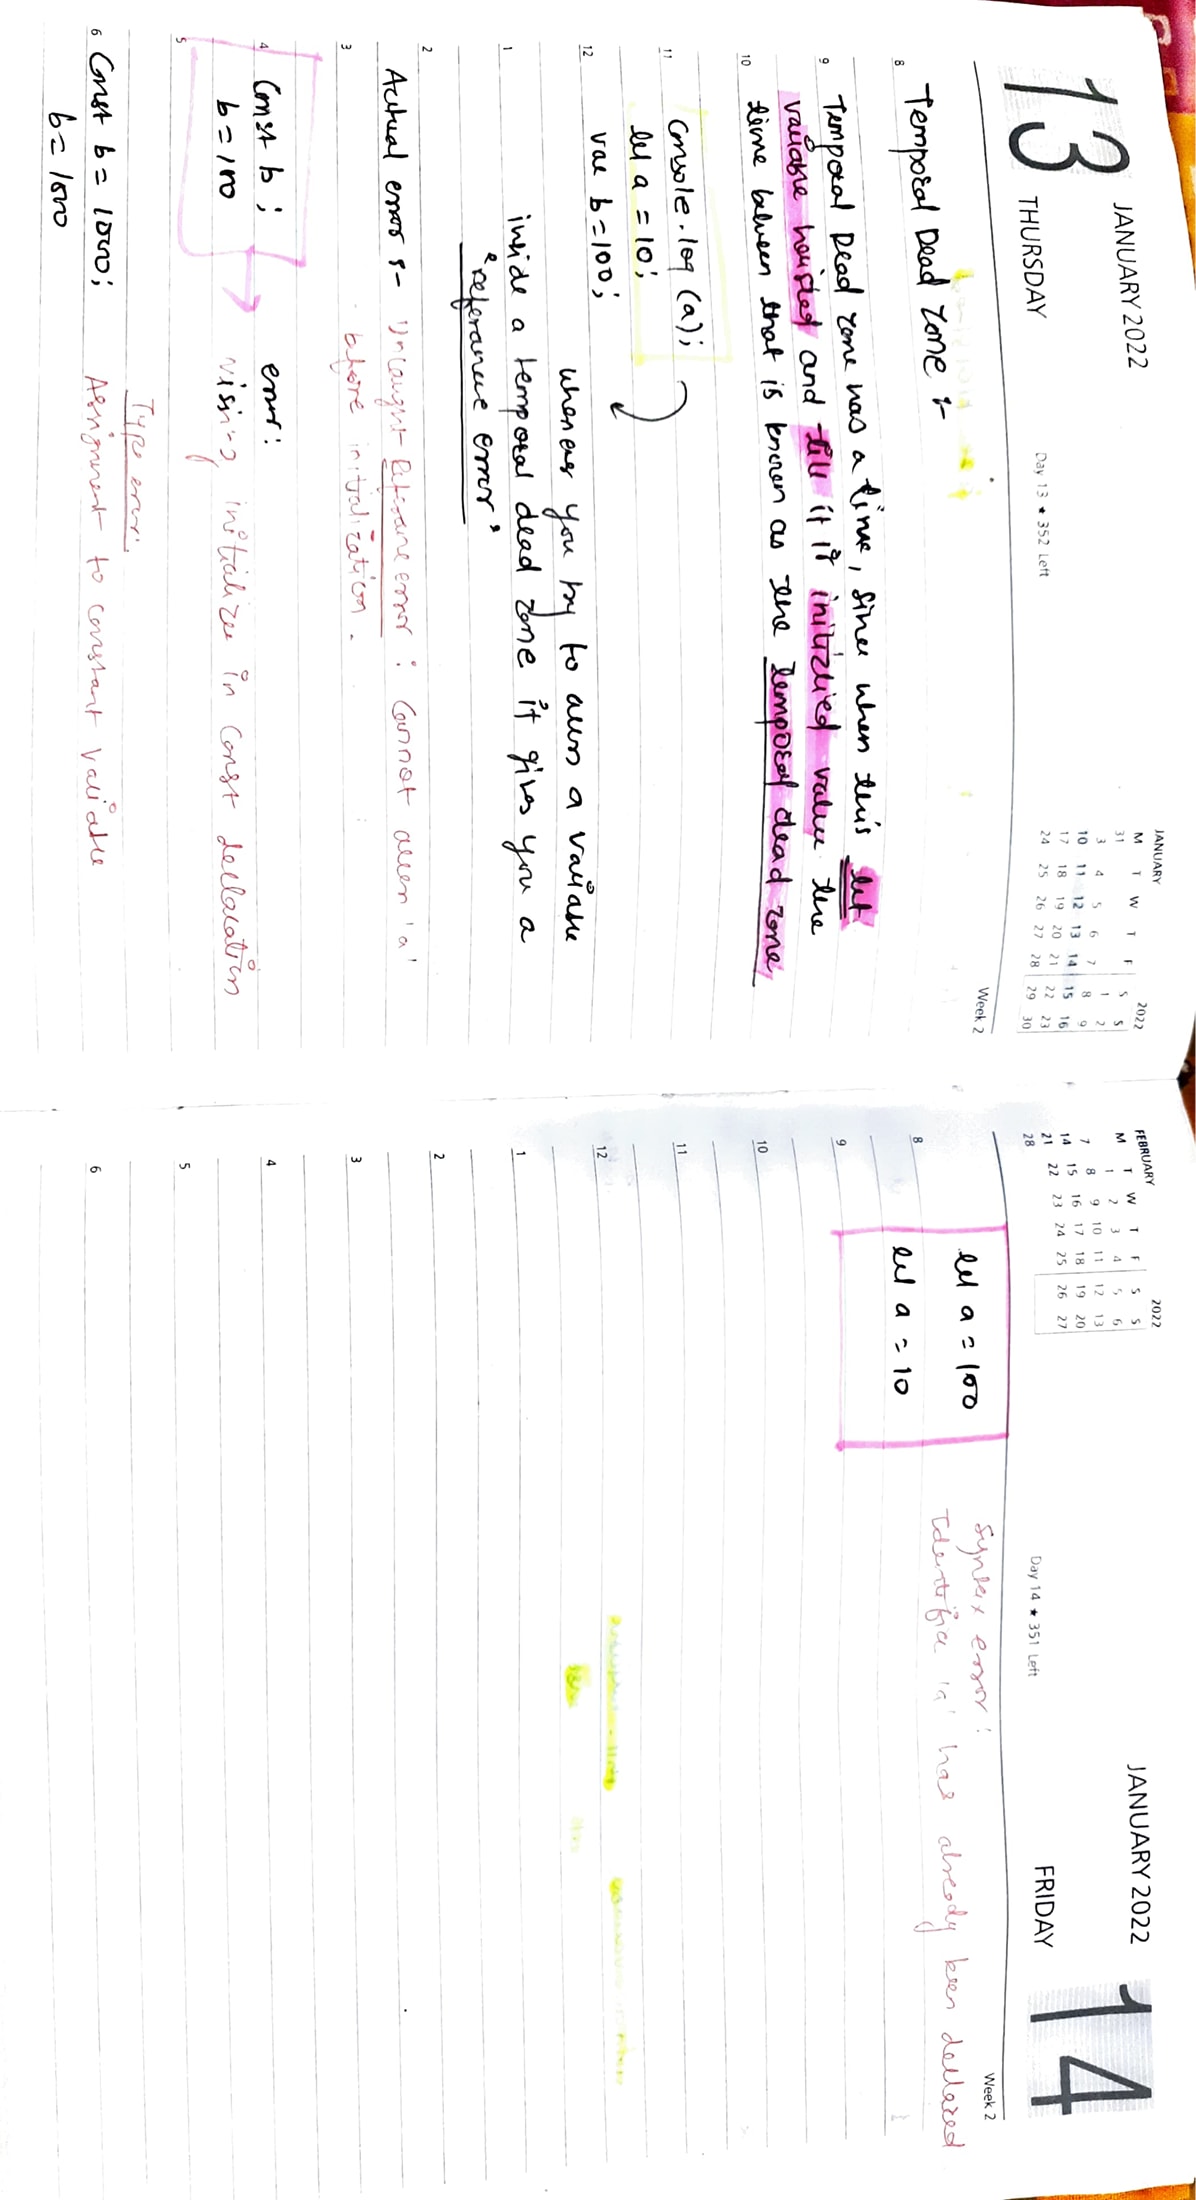 13
JANUARY 2022
THURSDAY
Day 13 ★ 352 Left
JANUARY 2022
M T W T F S S
31 1 2
3 4 5 6 7 8 9
10 11 12 13 14 15 16
17 18 19 20 21 22 23
24 25 26 27 28 29 30
Week 2
Temporal Dead Zone :-
8
Temporal Dead zone has a time, since when this let
9
variable hoisted and till it is initizlied value the
time between that is known as the temporal dead zone
10
console.log (a);
11
let a = 10;
var b = 100;
12
whenever you try to access a variable
inside a temporal dead zone it gives you a
1
"referance error"
2
Actual error :- Uncaught Referance error : Cannot access 'a'
before initialization.
3
Const b ; error:
4
b = 100 initializer in const declaration
5
Type error.
6 Const b = 1000; Assignment to constant variable
b = 1000
FEBRUARY 2022
M T W T F S S
1 2 3 4 5 6
7 8 9 10 11 12 13
14 15 16 17 18 19 20
21 22 23 24 25 26 27
28
JANUARY 2022
14
FRIDAY
Day 14 ★ 351 Left
Week 2
let a = 100 Syntax error :
has already been declared
8
let a = 10
9
10
11
12
1
2
3
4
5
6